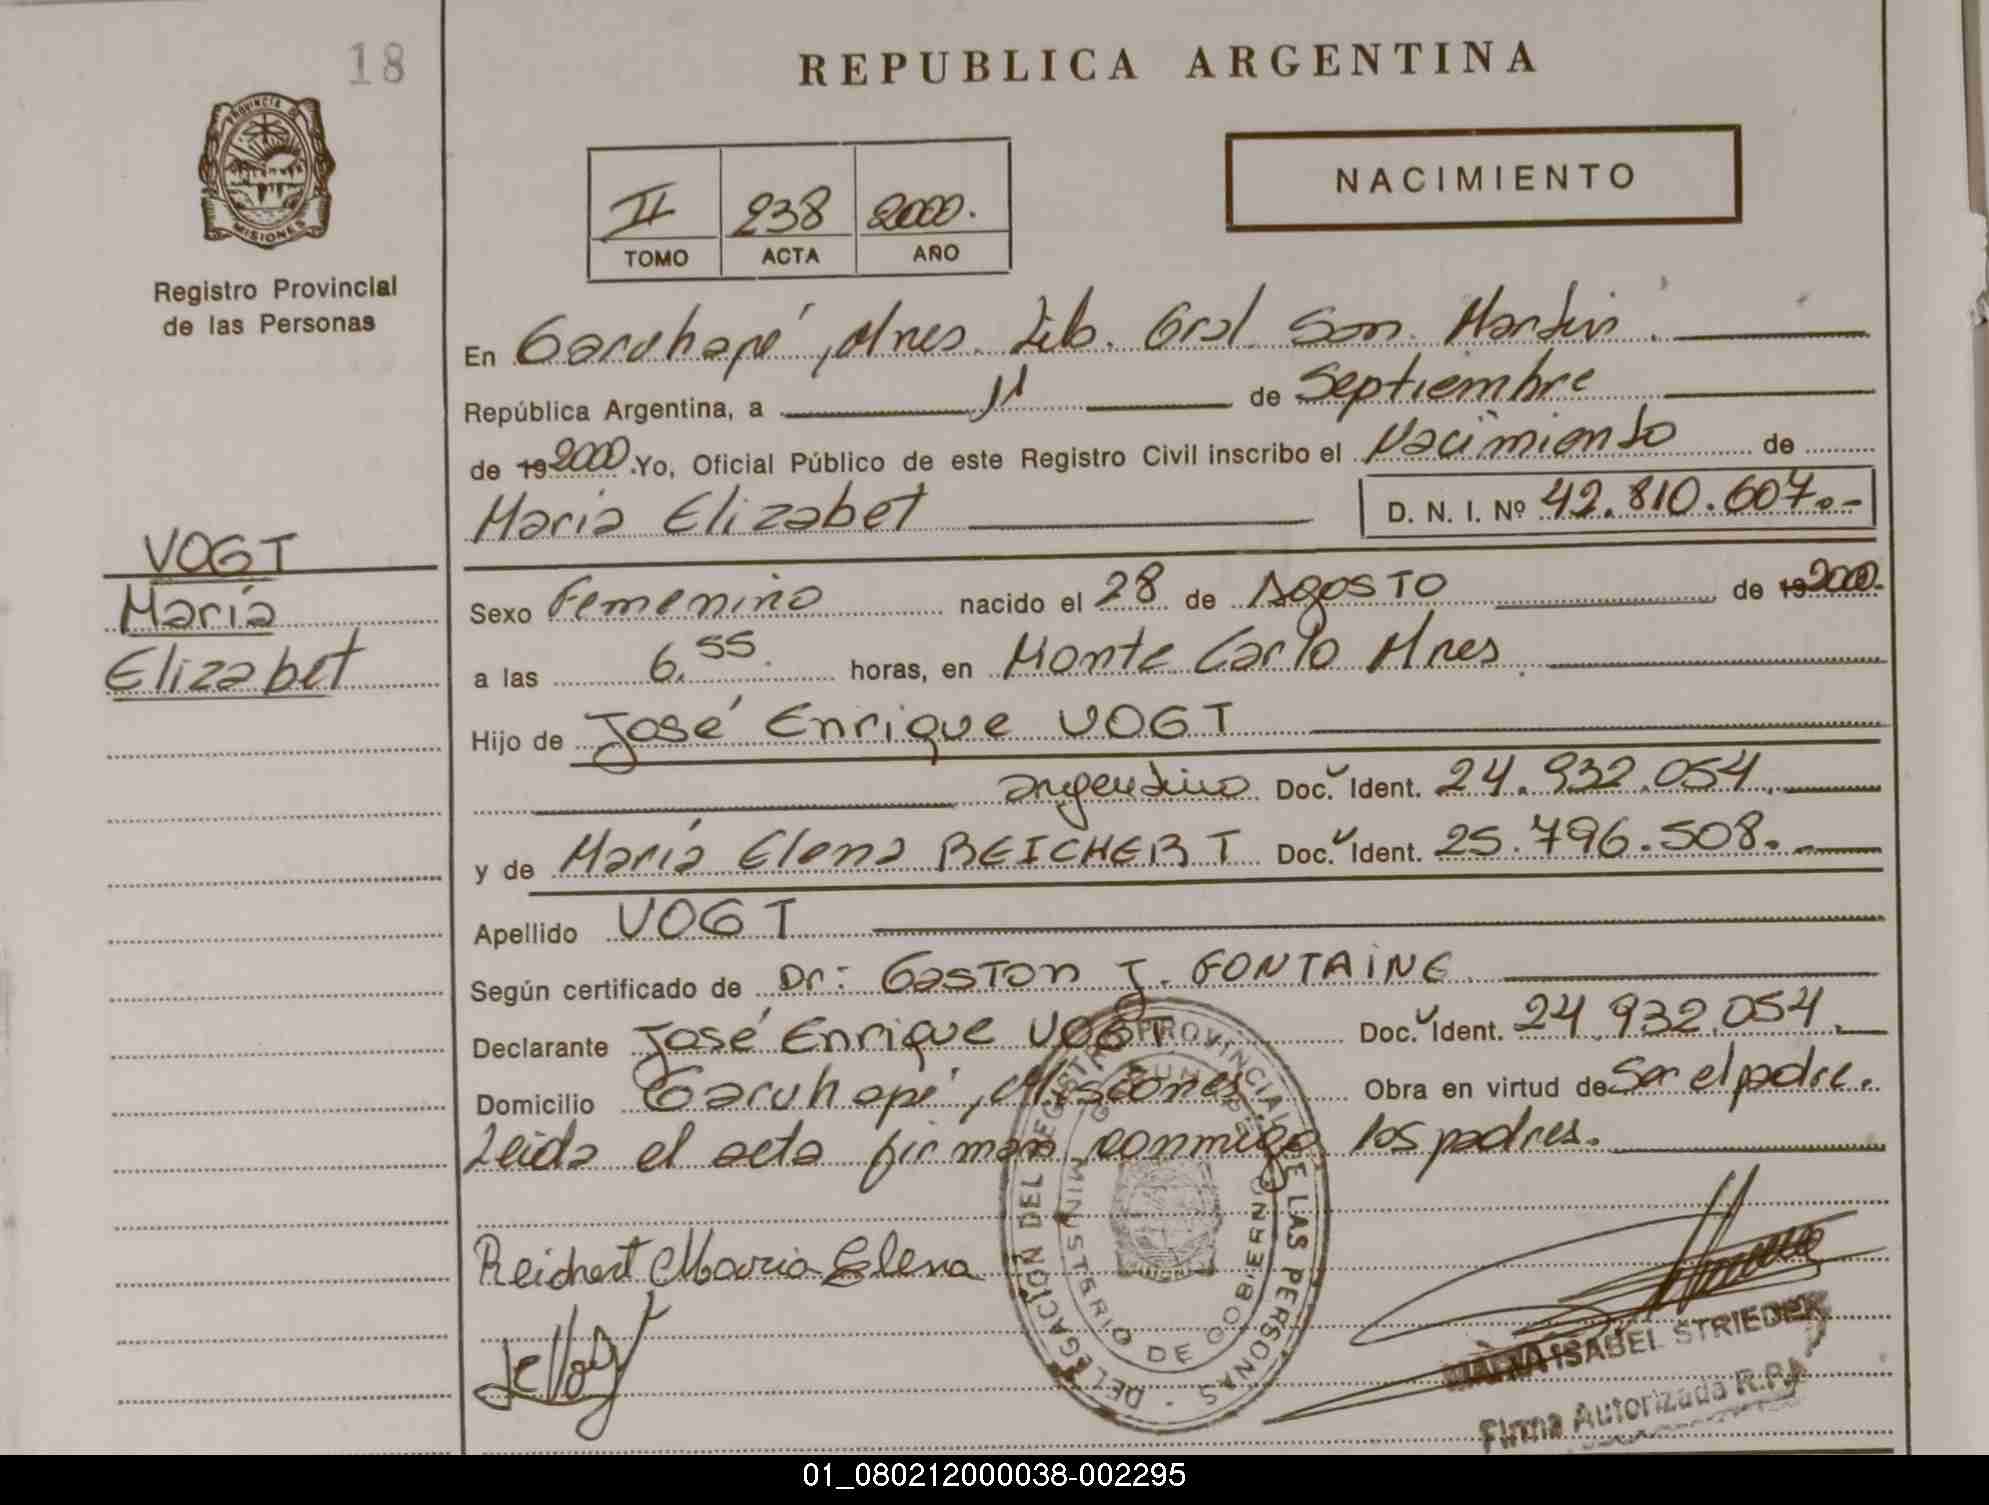 18
REPUBLICA ARGENTINA
PROVINCIA DE
MISIONES
Registro Provincial
de las Personas
II 238 2000.
TOMO ACTA AÑO
NACIMIENTO
En Garuhapé, Mnes. Lib. Gral. San. Martin.
República Argentina, a 11 de Septiembre
de 19 2000. Yo, Oficial Público de este Registro Civil inscribo el Nacimiento de
María Elizabet D. N. I. Nº 42.810.607.-
VOGT
María
Elizabet
Sexo Femenino nacido el 28 de Agosto de 19 2000.
a las 6.55. horas, en Monte Carlo Mnes.
Hijo de José Enrique VOGT
argentino Doc. Ident. 24.932.054.
y de María Elena REICHERT Doc. Ident. 25.796.508.-
Apellido VOGT
Según certificado de Dr: Gaston J. FONTAINE
Declarante José Enrique VOGT Doc. Ident. 24.932.054.
Domicilio Garuhapé, Misiones. Obra en virtud de Ser el padre.
Leida el acta firman conmigo los padres.
DELEGACIÓN DEL REGISTRO PROVINCIAL DE LAS PERSONAS
MINISTERIO DE GOBIERNO
Reichert Maria Elena
MARIA ISABEL STRIEDER
Firma Autorizada R.P.P.
01_080212000038-002295